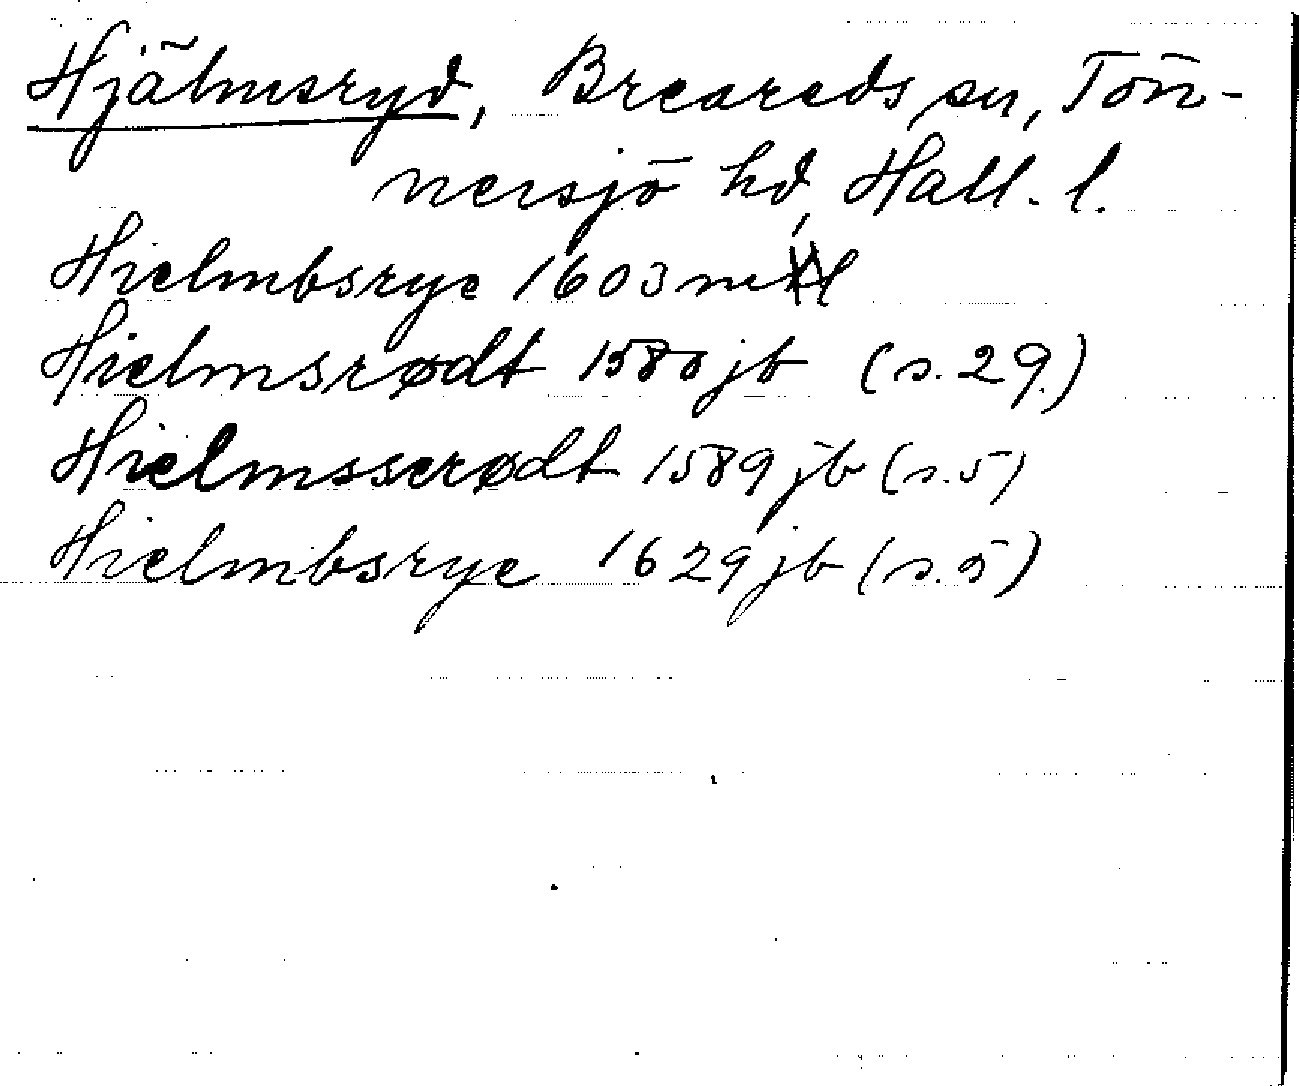 Hjälmsryd, Breareds sn, Tön-
nersjö hd, Hall. l.
Hielmbsrye 1603 mtl
Hielmsrødt 1580 jb (s. 29.)
Hielmsserødt 1589 jb (s. 5)
Hielmbsrye 1629 jb (s. 5)